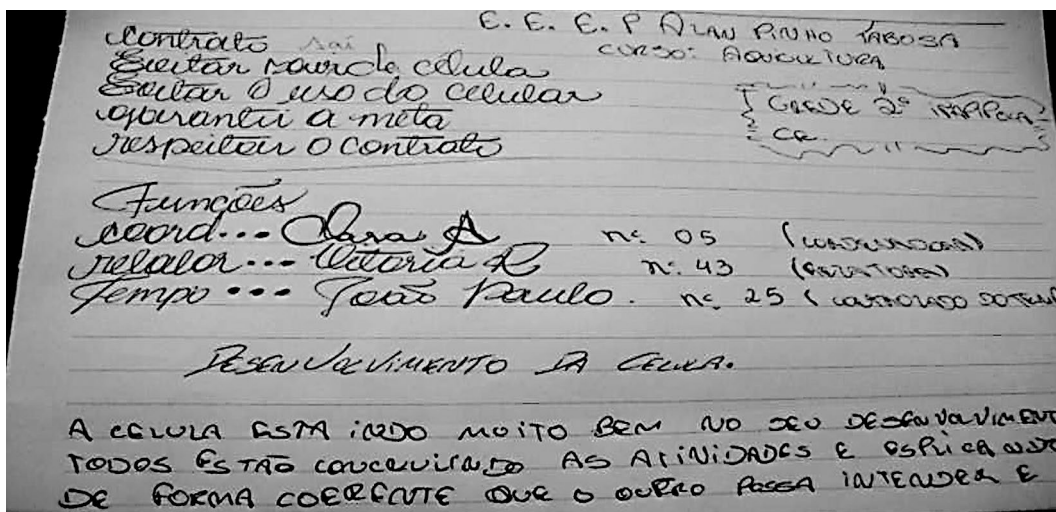 E. E. E. P ALAN PINHO TABOSA
CURSO: AQUICULTURA
contrato sai
Evitar sair da célula
Evitar o uso do celular
garantir a meta
respeitar o contrato
GREDE 2º ITAPIPOCA
CE.
Funções
coord... Clara A nº 05 (COORDENADORA)
relator... Vitória R nº. 43 (RELATORA)
Tempo... João Paulo. nº 25 (
DESENVOLVIMENTO DA CELULA.
A CELULA ESTA INDO MUITO BEM NO SEU DESENVOLVIMENT
TODOS ESTÃO CONCLUINDO AS ATIVIDADES E ESPLICANDO
DE FORMA COERENTE QUE O OUTRO POSSA INTENDER E